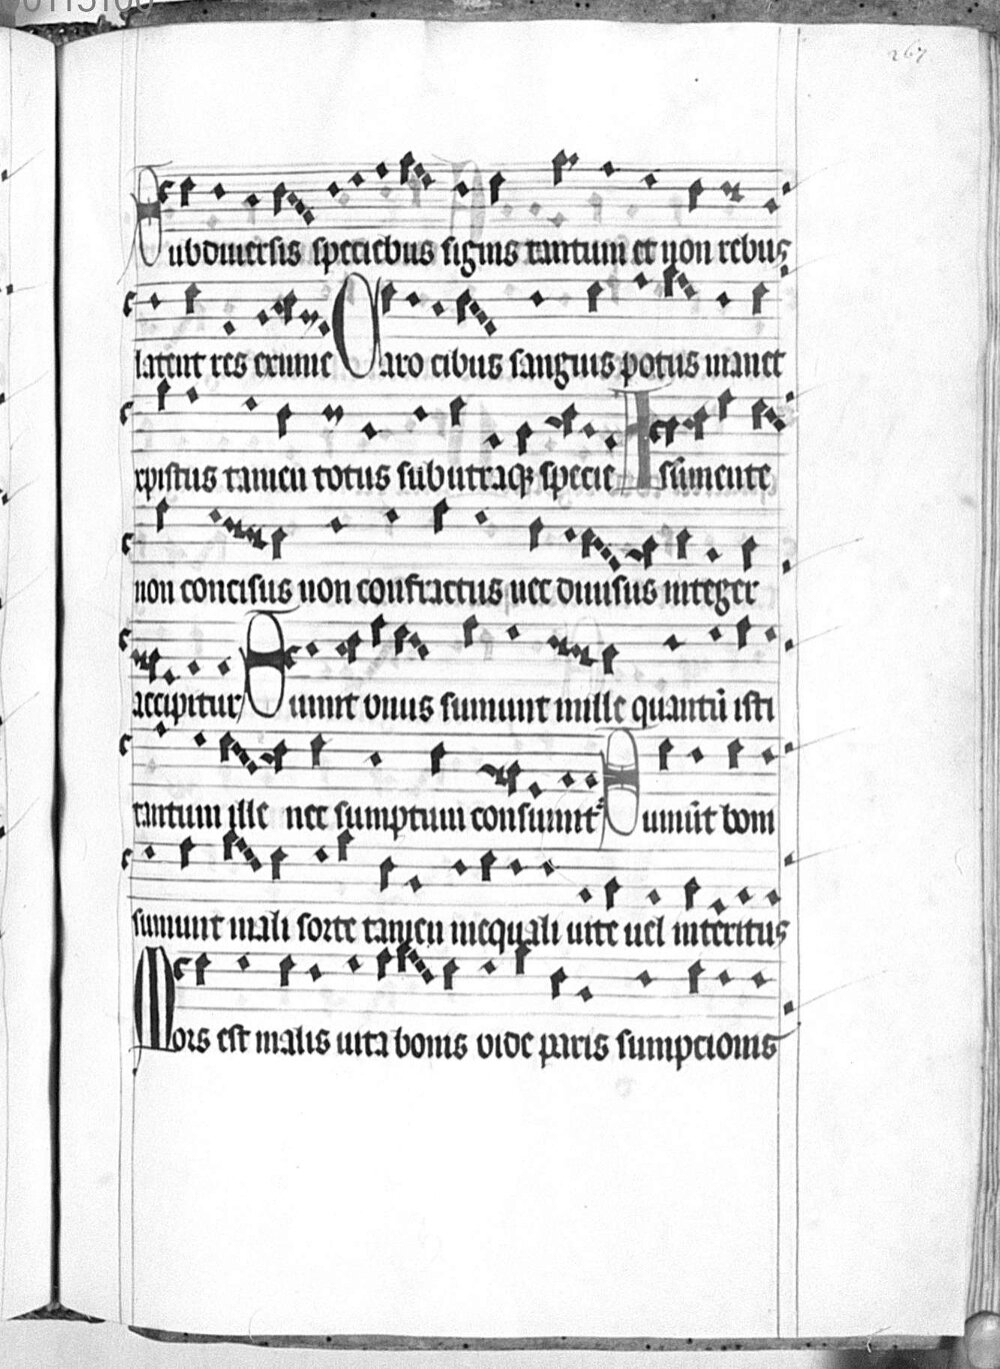 0115100
267
Sub diuersis speciebus signis tantum et non rebus
latent res eximie Caro cibus sanguis potus manet
xpistus tamen totus sub utraqꝫ specie A sūmente
non concisus non confractus nec diuisus integer
accipitur Sumit vnus sumunt mille quantū isti
tantum ille nec sumptum consumit² Sumūt boni
sumunt mali sorte tamen inequali uite uel interitus
Mors est malis uita bonis vide paris sumpcionis